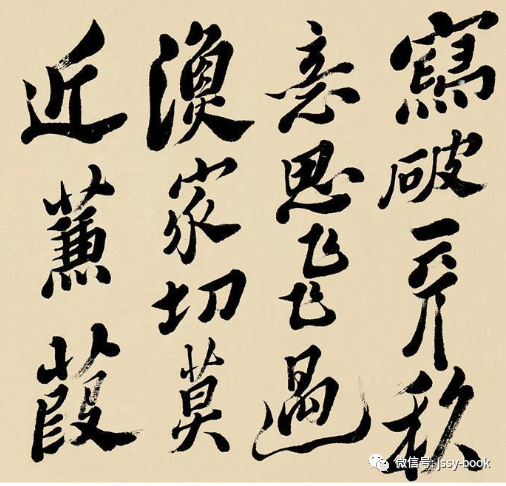 寫破一行秋
意思飞飞過
漁家切莫
近蒹葭
微信号: jssy-book